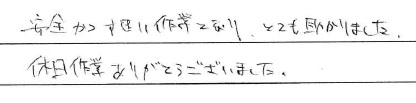 安全かつ丁寧な作業であり、とても助かりました。
休日作業ありがとうございました。